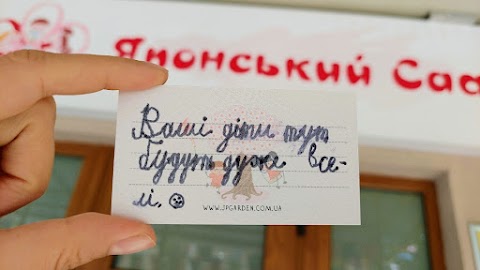 Японський Сад
Ваші діти тут
будуть дуже все-
лі. ☺
WWW.JPGARDEN.COM.UA